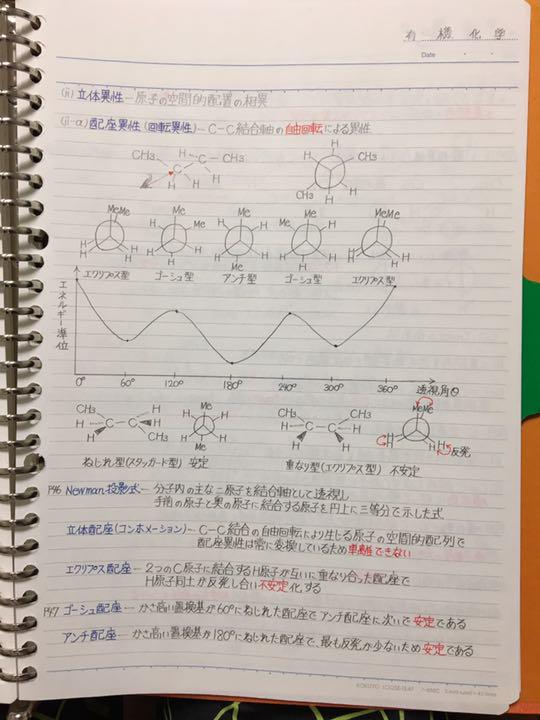 有機化学
Date
(ii) 立体異性 ─ 原子の空間的配置の相異
(ii-α) 配座異性 (回転異性) ─ C-C結合軸の自由回転による異性
CH₃ H C C CH₃ H H H
H H CH₃ CH₃ H H
MeMe H H H H
Me H Me H H H
Me H H H H Me
Me Me H H H H
MeMe H H H H
エクリプス型 ゴーシュ型 アンチ型 ゴーシュ型 エクリプス型
エネルギー準位
0° 60° 120° 180° 240° 300° 360° 透視角θ
CH₃ H H C-C H H CH₃
Me H H H H Me
CH₃ CH₃ H C-C H H H
MeMe H H H H 反発
ねじれ型(スタッガード型) 安定
重なり型(エクリプス型) 不安定
P46 Newman投影式 ─ 分子内の主な二原子を結合軸として透視し
手前の原子と奥の原子に結合する原子を円上に三等分で示した式
立体配座(コンホメーション) ─ C-C結合の自由回転により生じる原子の空間的配列で
配座異性は常に変換しているため単離できない
エクリプス配座 ─ 2つのC原子に結合するH原子が互いに重なり合った配座で
H原子同士が反発し合い不安定化する
P47 ゴーシュ配座 ─ かさ高い置換基が60°にねじれた配座でアンチ配座に次いで安定である
アンチ配座 ─ かさ高い置換基が180°にねじれた配座で、最も反発が少ないため安定である
KOKUYO LOOSE-LEAF